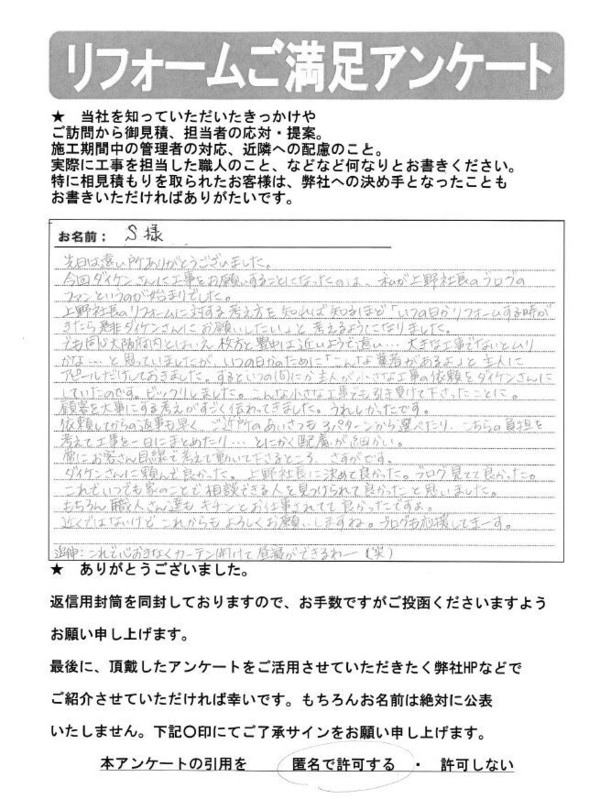 リフォームご満足アンケート
★　当社を知っていただいたきっかけや
ご訪問から御見積、担当者の応対・提案。
施工期間中の管理者の対応、近隣への配慮のこと。
実際に工事を担当した職人のこと、などなど何なりとお書きください。
特に相見積もりを取られたお客様は、弊社への決め手となったことも
お書きいただければありがたいです。
お名前： S 様
先日は遠い所ありがとうございました。
今回ダイケンさんに工事をお願いすることになったのは、私が上野社長のブログの
ファンというのが始まりでした。
上野社長のリフォームに対する考え方を知れば知るほど「いつの日かリフォームする時が
きたら是非ダイケンさんにお願いしたい」と考えるようになりました。
でも同じ大阪府内とはいえ、枚方と豊中は近いようで遠い… 大きな工事でないとムリ
かな…と思っていましたが、いつの日かのために「こんな業者があるよ」と主人に
アピールだけしておきました。するといつの間にか主人が小さな工事の依頼をダイケンさんに
していたのです。ビックリしました。こんな小さな工事でも引き受けて下さったことに。
顧客を大事にする考えがすごく伝わってきました。うれしかったです。
依頼してからの返事も早く、ご近所のあいさつも3パターンから選べたり、こちらの負担を
考えて工事を一日にまとめたり… とにかく配慮が細かい。
常にお客さん目線で考えて動いて下さるところ、さすがです。
ダイケンさんに頼んで良かった。上野社長に決めて良かった。ブログ見てて良かった。
これでいつでも家のことで相談できる人を見つけられて良かったと思いました。
もちろん職人さん達もキチンとお仕事されてて良かったですよ。
近くではないけどこれからもよろしくお願いしますね。ブログも応援してまーす。
追伸：これで心おきなくカーテン開けて昼寝ができるわー（笑）
★　ありがとうございました。
返信用封筒を同封しておりますので、お手数ですがご投函くださいますよう
お願い申し上げます。
最後に、頂戴したアンケートをご活用させていただきたく弊社HPなどで
ご紹介させていただければ幸いです。もちろんお名前は絶対に公表
いたしません。下記〇印にてご了承サインをお願い申し上げます。
本アンケートの引用を　　匿名で許可する　・　許可しない